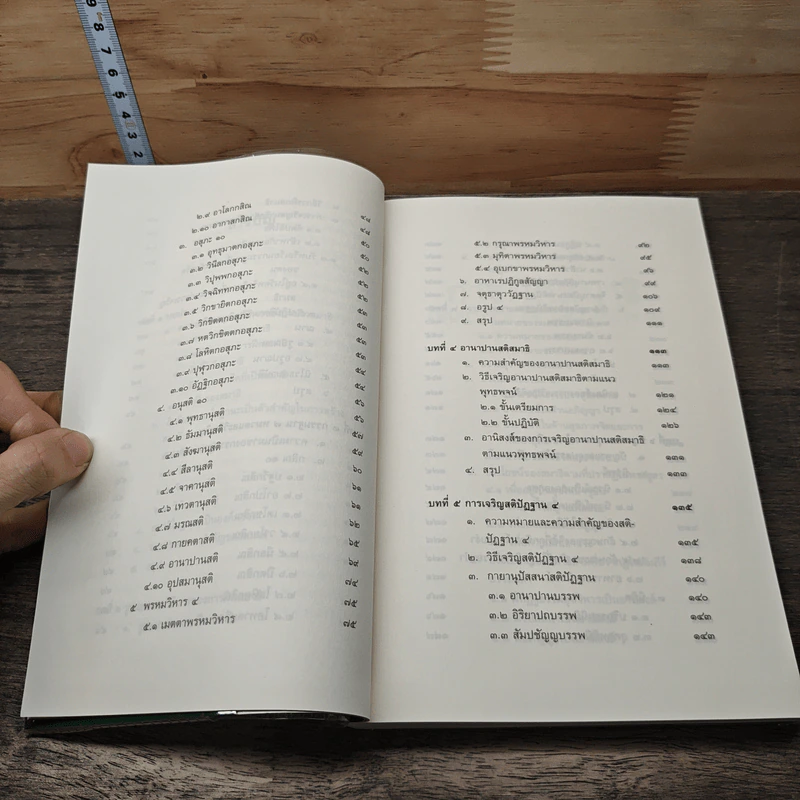 9 8 7 6 5 4 3 2
๒.๙ อาโลกกสิณ ๔๘
๒.๑๐ อากาสกสิณ ๔๘
๓. อสุภะ ๑๐ ๕๐
๓.๑ อุทธุมาตกอสุภะ ๕๐
๓.๒ วินีลกอสุภะ ๕๒
๓.๓ วิปุพพกอสุภะ ๕๒
๓.๔ วิจฉิททกอสุภะ ๕๒
๓.๕ วิกขายิตกอสุภะ ๕๓
๓.๖ วิกขิตตกอสุภะ ๕๓
๓.๗ หตวิกขิตตกอสุภะ ๕๓
๓.๘ โลหิตกอสุภะ ๕๓
๓.๙ ปุฬุวกอสุภะ ๕๔
๓.๑๐ อัฏฐิกอสุภะ ๕๔
๔. อนุสติ ๑๐ ๕๖
๔.๑ พุทธานุสติ ๕๗
๔.๒ ธัมมานุสติ ๕๙
๔.๓ สังฆานุสติ ๖๐
๔.๔ สีลานุสติ ๖๑
๔.๕ จาคานุสติ ๖๑
๔.๖ เทวตานุสติ ๖๒
๔.๗ มรณสติ ๖๕
๔.๘ กายคตาสติ ๖๙
๔.๙ อานาปานสติ ๗๔
๔.๑๐ อุปสมานุสติ
๕ พรหมวิหาร ๔ ๗๕
๕.๑ เมตตาพรหมวิหาร ๗๕
๕.๒ กรุณาพรหมวิหาร ๙๒
๕.๓ มุทิตาพรหมวิหาร ๙๕
๕.๔ อุเบกขาพรหมวิหาร ๙๖
๖. อาหาเรปฏิกูลสัญญา ๙๙
๗. จตุธาตุววัฏฐาน ๑๐๖
๘. อรูป ๔ ๑๐๙
๙. สรุป ๑๑๑
บทที่ ๔ อานาปานสติสมาธิ ๑๑๓
๑. ความสำคัญของอานาปานสติสมาธิ ๑๑๓
๒. วิธีเจริญอานาปานสติสมาธิตามแนว
พุทธพจน์ ๑๒๑
๒.๑ ขั้นเตรียมการ ๑๒๔
๒.๒ ขั้นปฏิบัติ ๑๒๖
๓. อานิสงส์ของการเจริญอานาปานสติสมาธิ
ตามแนวพุทธพจน์ ๑๓๑
๔. สรุป ๑๓๓
บทที่ ๕ การเจริญสติปัฏฐาน ๔ ๑๓๕
๑. ความหมายและความสำคัญของสติ-
ปัฏฐาน ๔ ๑๓๕
๒. วิธีเจริญสติปัฏฐาน ๔ ๑๓๘
๓. กายานุปัสสนาสติปัฏฐาน ๑๔๐
๓.๑ อานาปานบรรพ ๑๔๐
๓.๒ อิริยาปถบรรพ ๑๔๓
๓.๓ สัมปชัญญบรรพ ๑๔๓